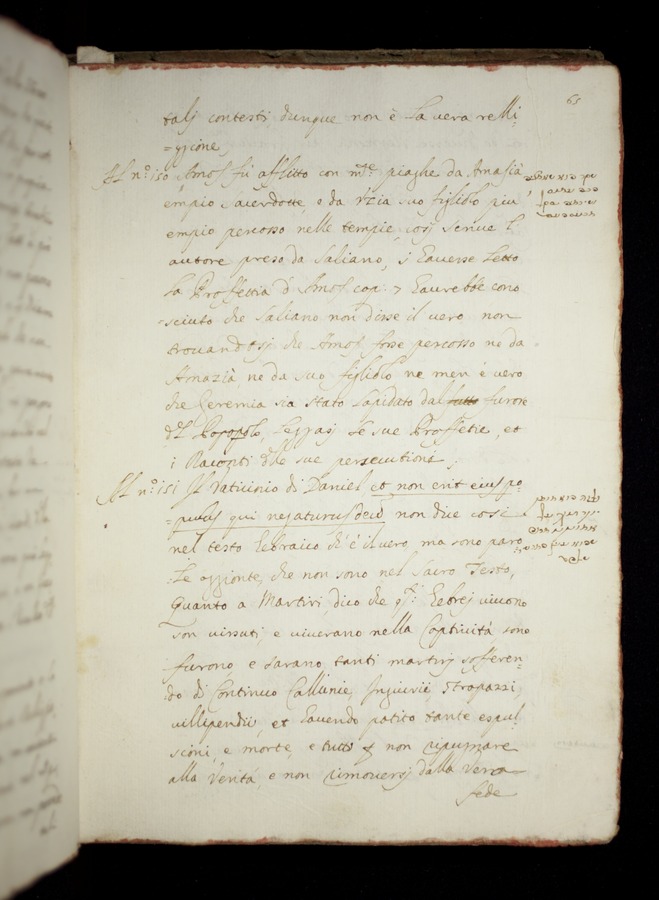 65
talj contesti, dunque non è la vera relli-
=ggione,
Al nº: 150 Amos fù afflitto con m.te piaghe da Amasià
empio sacerdotte, o da Vzia suo figliolo piu
empio percosso nelle tempie, così scriue l'
autore preso da Saliano, s'hauesse letto
la Proffettia d'Amos cap: 7 haurebbe cono
=sciuto che Saliano non disse il uero non
trouandosi che Amos fosse percosso ne da
Amazià ne da suo figliolo ne men è uero
che Geremia sia stato lapidato dal tutto furore
del Popopolo, leggasj le sue Proffetie, et
i Raconti delle sue persecutioni.
Al nº: 151 Il Vaticinio di Daniel et non erit eius po-
=pulus qui negaturus est non dice così
nel testo hebraico ch'è il uero, ma sono paro
=le aggionte, che non sono nel sacro Testo,
Quanto a Martiri, dico che hebrej uiuono
son uissuti, e uiuerano nella Captiuità, sono
furono, e sarano, tanti martirj sofferen-
do di Continuo Callunie, Ingiurie, strapazzi,
uillipendii, et hauendo patito tante espul-
scioni, e morte, e tutto non ripugnare
alla Verità, e non rimouersj dalla Vera
fede